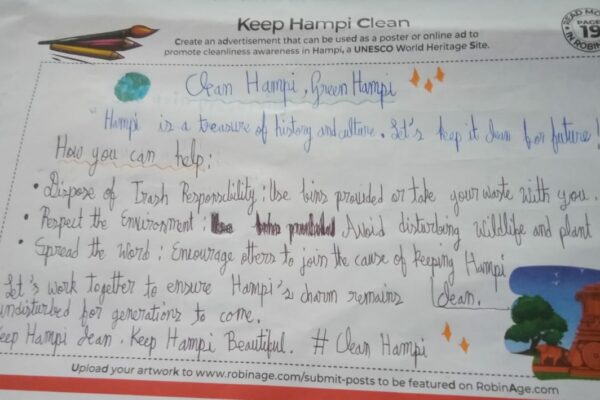 Keep Hampi Clean
Create an advertisement that can be used as a poster or online ad to
promote cleanliness awareness in Hampi, a UNESCO World Heritage Site.
READ MO
PAGE
19
IN ROBIN
Clean Hampi, Green Hampi
"Hampi is a treasure of history and culture. Let's keep it clean for future!
How you can help:
• Dispose of Trash Responsbility: Use bins provided or take your waste with you.
• Respect the Environment: Avoid disturbing wildlife and plant
• Spread the Word: Encourage others to join the cause of keeping Hampi
clean.
Let's work together to ensure Hampi's charm remains
undisturbed for generations to come.
eep Hampi clean. Keep Hampi Beautiful. # Clean Hampi
Upload your artwork to www.robinage.com/submit-posts to be featured on RobinAge.com